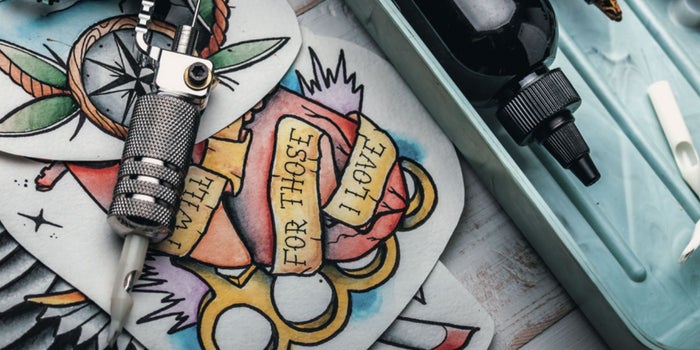 I WILL
FOR THOSE
I LOVE